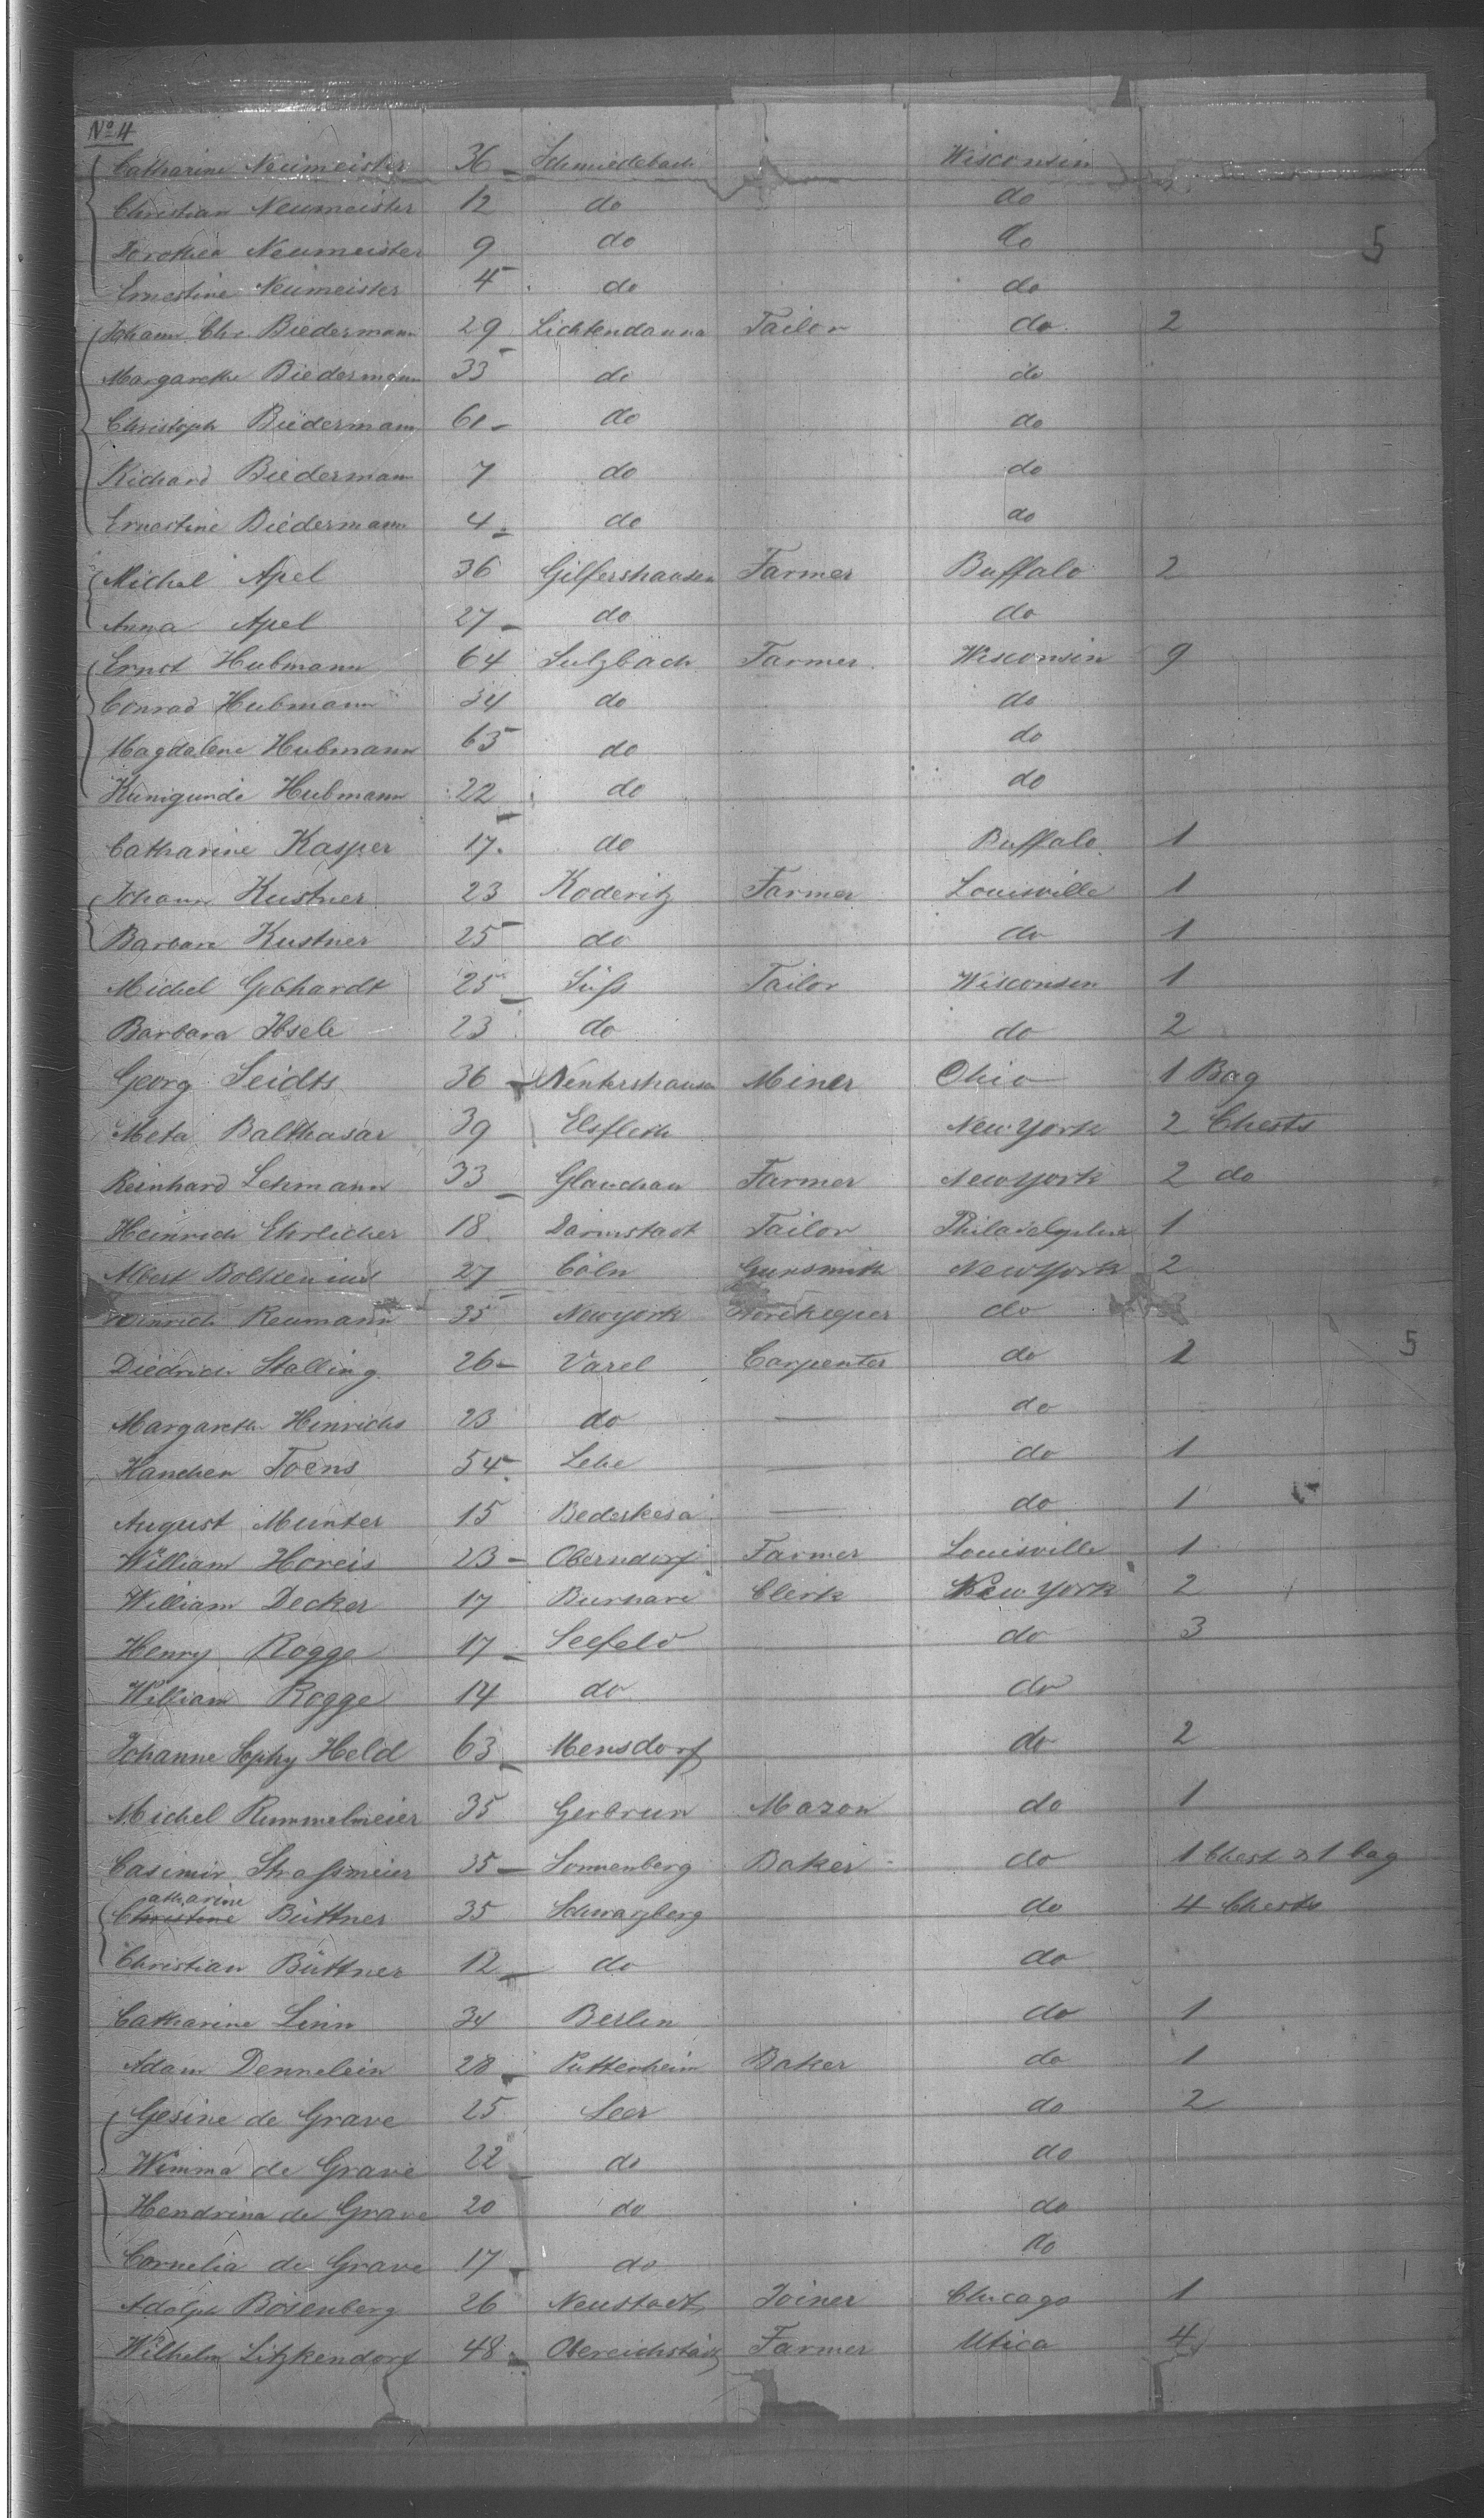 No 4
Catharine Neumeister 36 Schmiedebach Wisconsin
Christian Neumeister 12 do do
Dorothea Neumeister 9 do do
5
Ernestine Neumeister 4 do do
Johann Chr. Biedermann 29 Lichtendanna Tailor do 2
Margarethe Biedermann 33 do do
Christoph Biedermann 61 do do
Richard Biedermann 7 do do
Ernestine Biedermann 4 do do
Michel Apel 36 Gilfershausen Farmer Buffalo 2
Anna Apel 27 do do
Ernst Hubmann 64 Sulzbach Farmer Wisconsin 9
Conrad Hubmann 34 do do
Magdalene Hubmann 65 do do
Kunigunde Hubmann 22 do do
Catharine Kasper 17 do Buffalo 1
Johann Kustner 23 Koderitz Farmer Louisville 1
Barbara Kustner 25 do do 1
Michel Gebhardt 25 Süss Tailor Wisconsin 1
Barbara 23 do do 2
Georg Seidts 36 Nentershausen Miner Ohio 1 Bag
Meta Balthasar 39 Elsfleth New York 2 Chests
Reinhard Lehmann 33 Glauchau Farmer New York 2 do
Heinrich Ehrlicher 18 Darmstadt Tailor Philadelphia 1
Albert 27 Cöln Gunsmith New York 2
Heinrich Reumann 35 New york Storekeeper do
Diedrich Stalling 26 Varel Carpenter do 1
5
Margareth Hinrichs 23 do — do
Hanchen Toens 54 Lehe — do 1
August Munter 15 Bederkesa — do 1
William Horeis 23 Oberndorf Farmer Louisville 1
William Decker 17 Burhave Clerk New York 2
Henry Rogge 17 Seefeld do 3
William Rogge 14 do do
Johanne Sophy Held 63 Mensdorf do 2
Michel Rummelmeier 35 Gerbrun Mason do 1
Casimir Strassmeier 35 Sonnenberg Baker do 1 Chest & 1 bag
atharine
Christine Büttner 35 Schwarzberg do 4 Chests
Christian Büttner 12 do do
Catharine Linn 34 Berlin do 1
Adam Dennelein 28 Puttenheim Baker do 1
Gesine de Grave 25 Leer do 2
Wimma de Grave 22 do do
Hendrina de Grave 20 do do
Cornelia de Grave 17 do do
Adolph Bosenberg 26 Neustadt Joiner Chicago 1
Wilhelm Litzkendorf 48 Obereichstädt Farmer Utica 4